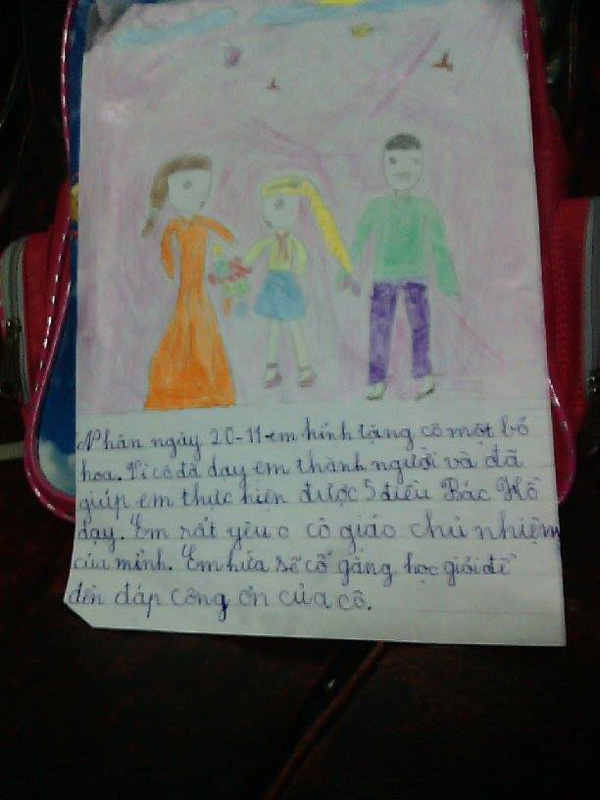 Nhân ngày 20-11 em kính tặng cô một bó
hoa. Vì cô đã dạy em thành người và đã
giúp em thực hiện được 5 điều Bác Hồ
dạy. Em rất yêu o cô giáo chủ nhiệm
của mình. Em hứa sẽ cố gắng học giỏi để
đền đáp công ơn của cô.